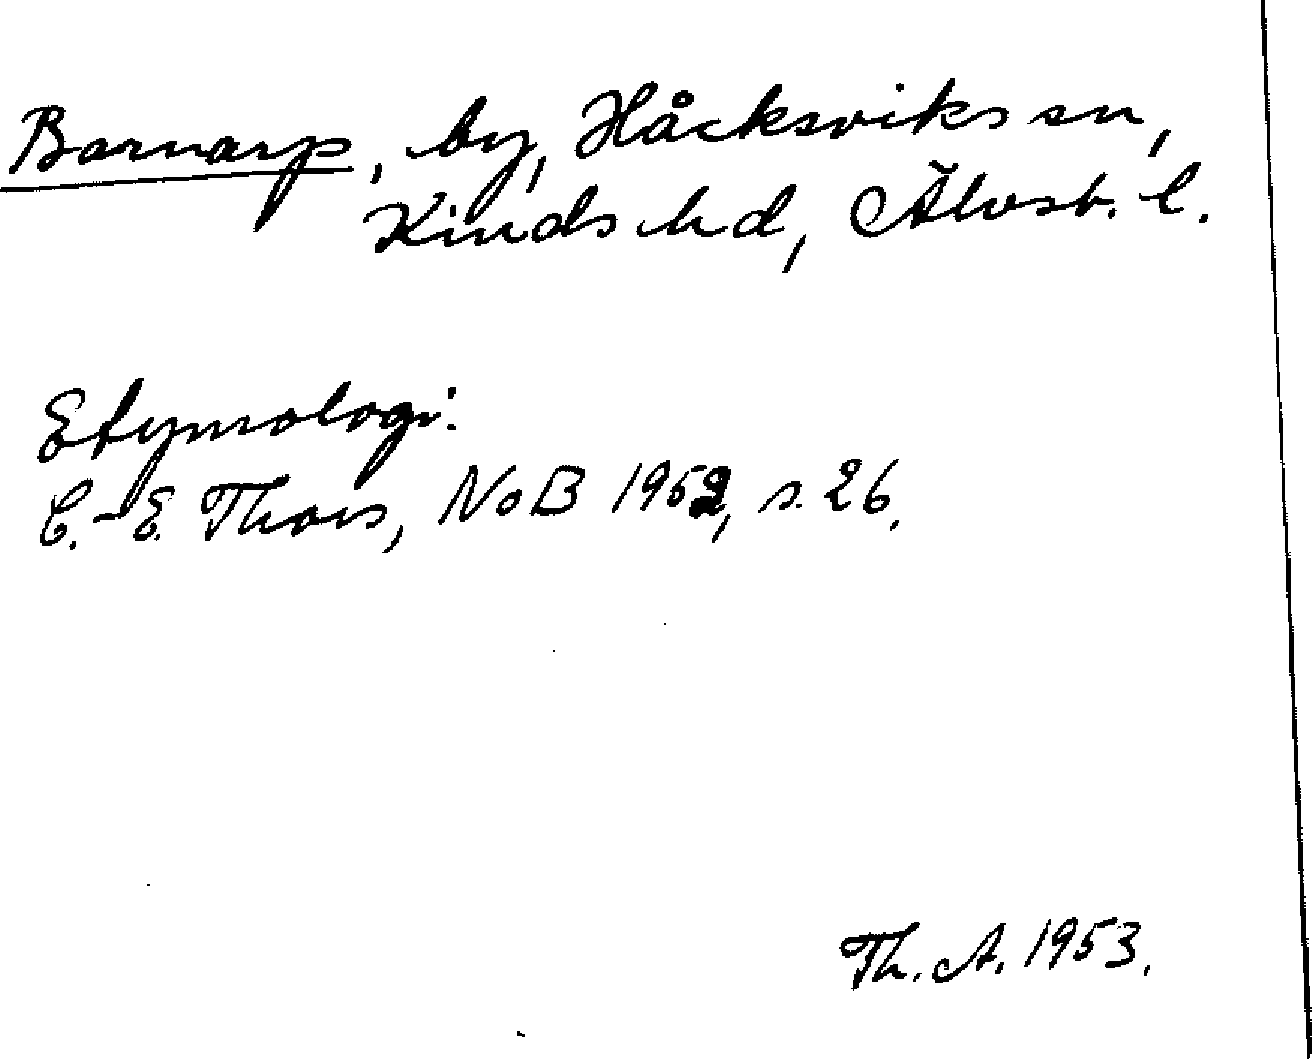 Barnarp, by, Håcksviks sn,
Kinds hd, Älvsb. l.
Etymologi:
C.-E. Thors, NoB 1952, s. 26.
Th. A. 1953.